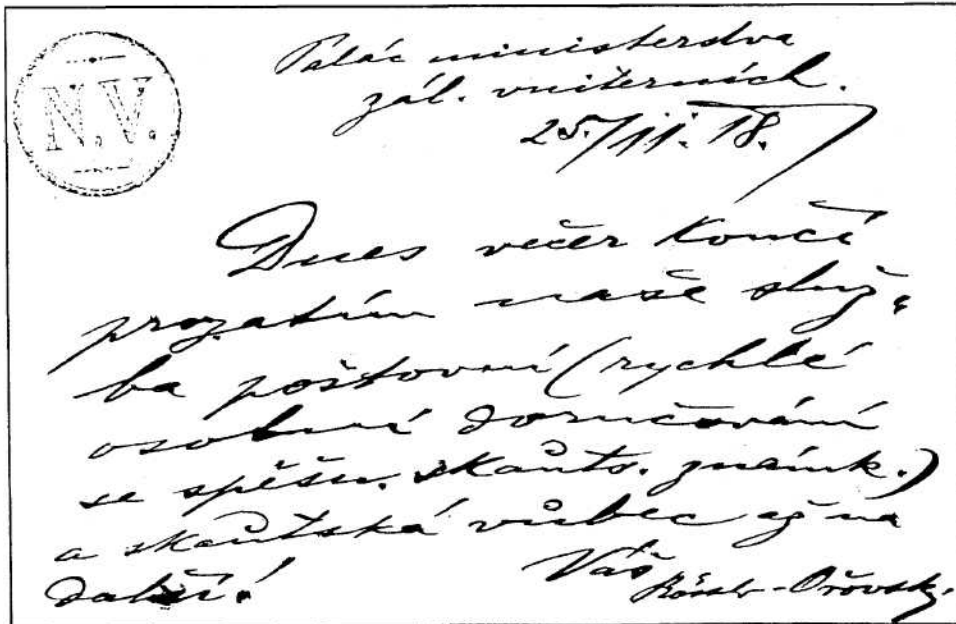 N.V.
Palác ministerstva
zál. vniterních.
25./11. 18.
Dnes večer končí
prozatím naše služ-
ba poštovní (rychlé
osobní doručování
se spěšn. skauts. známk.)
a skautská vůbec až na
další!
Váš
Rössler-Ořovský.